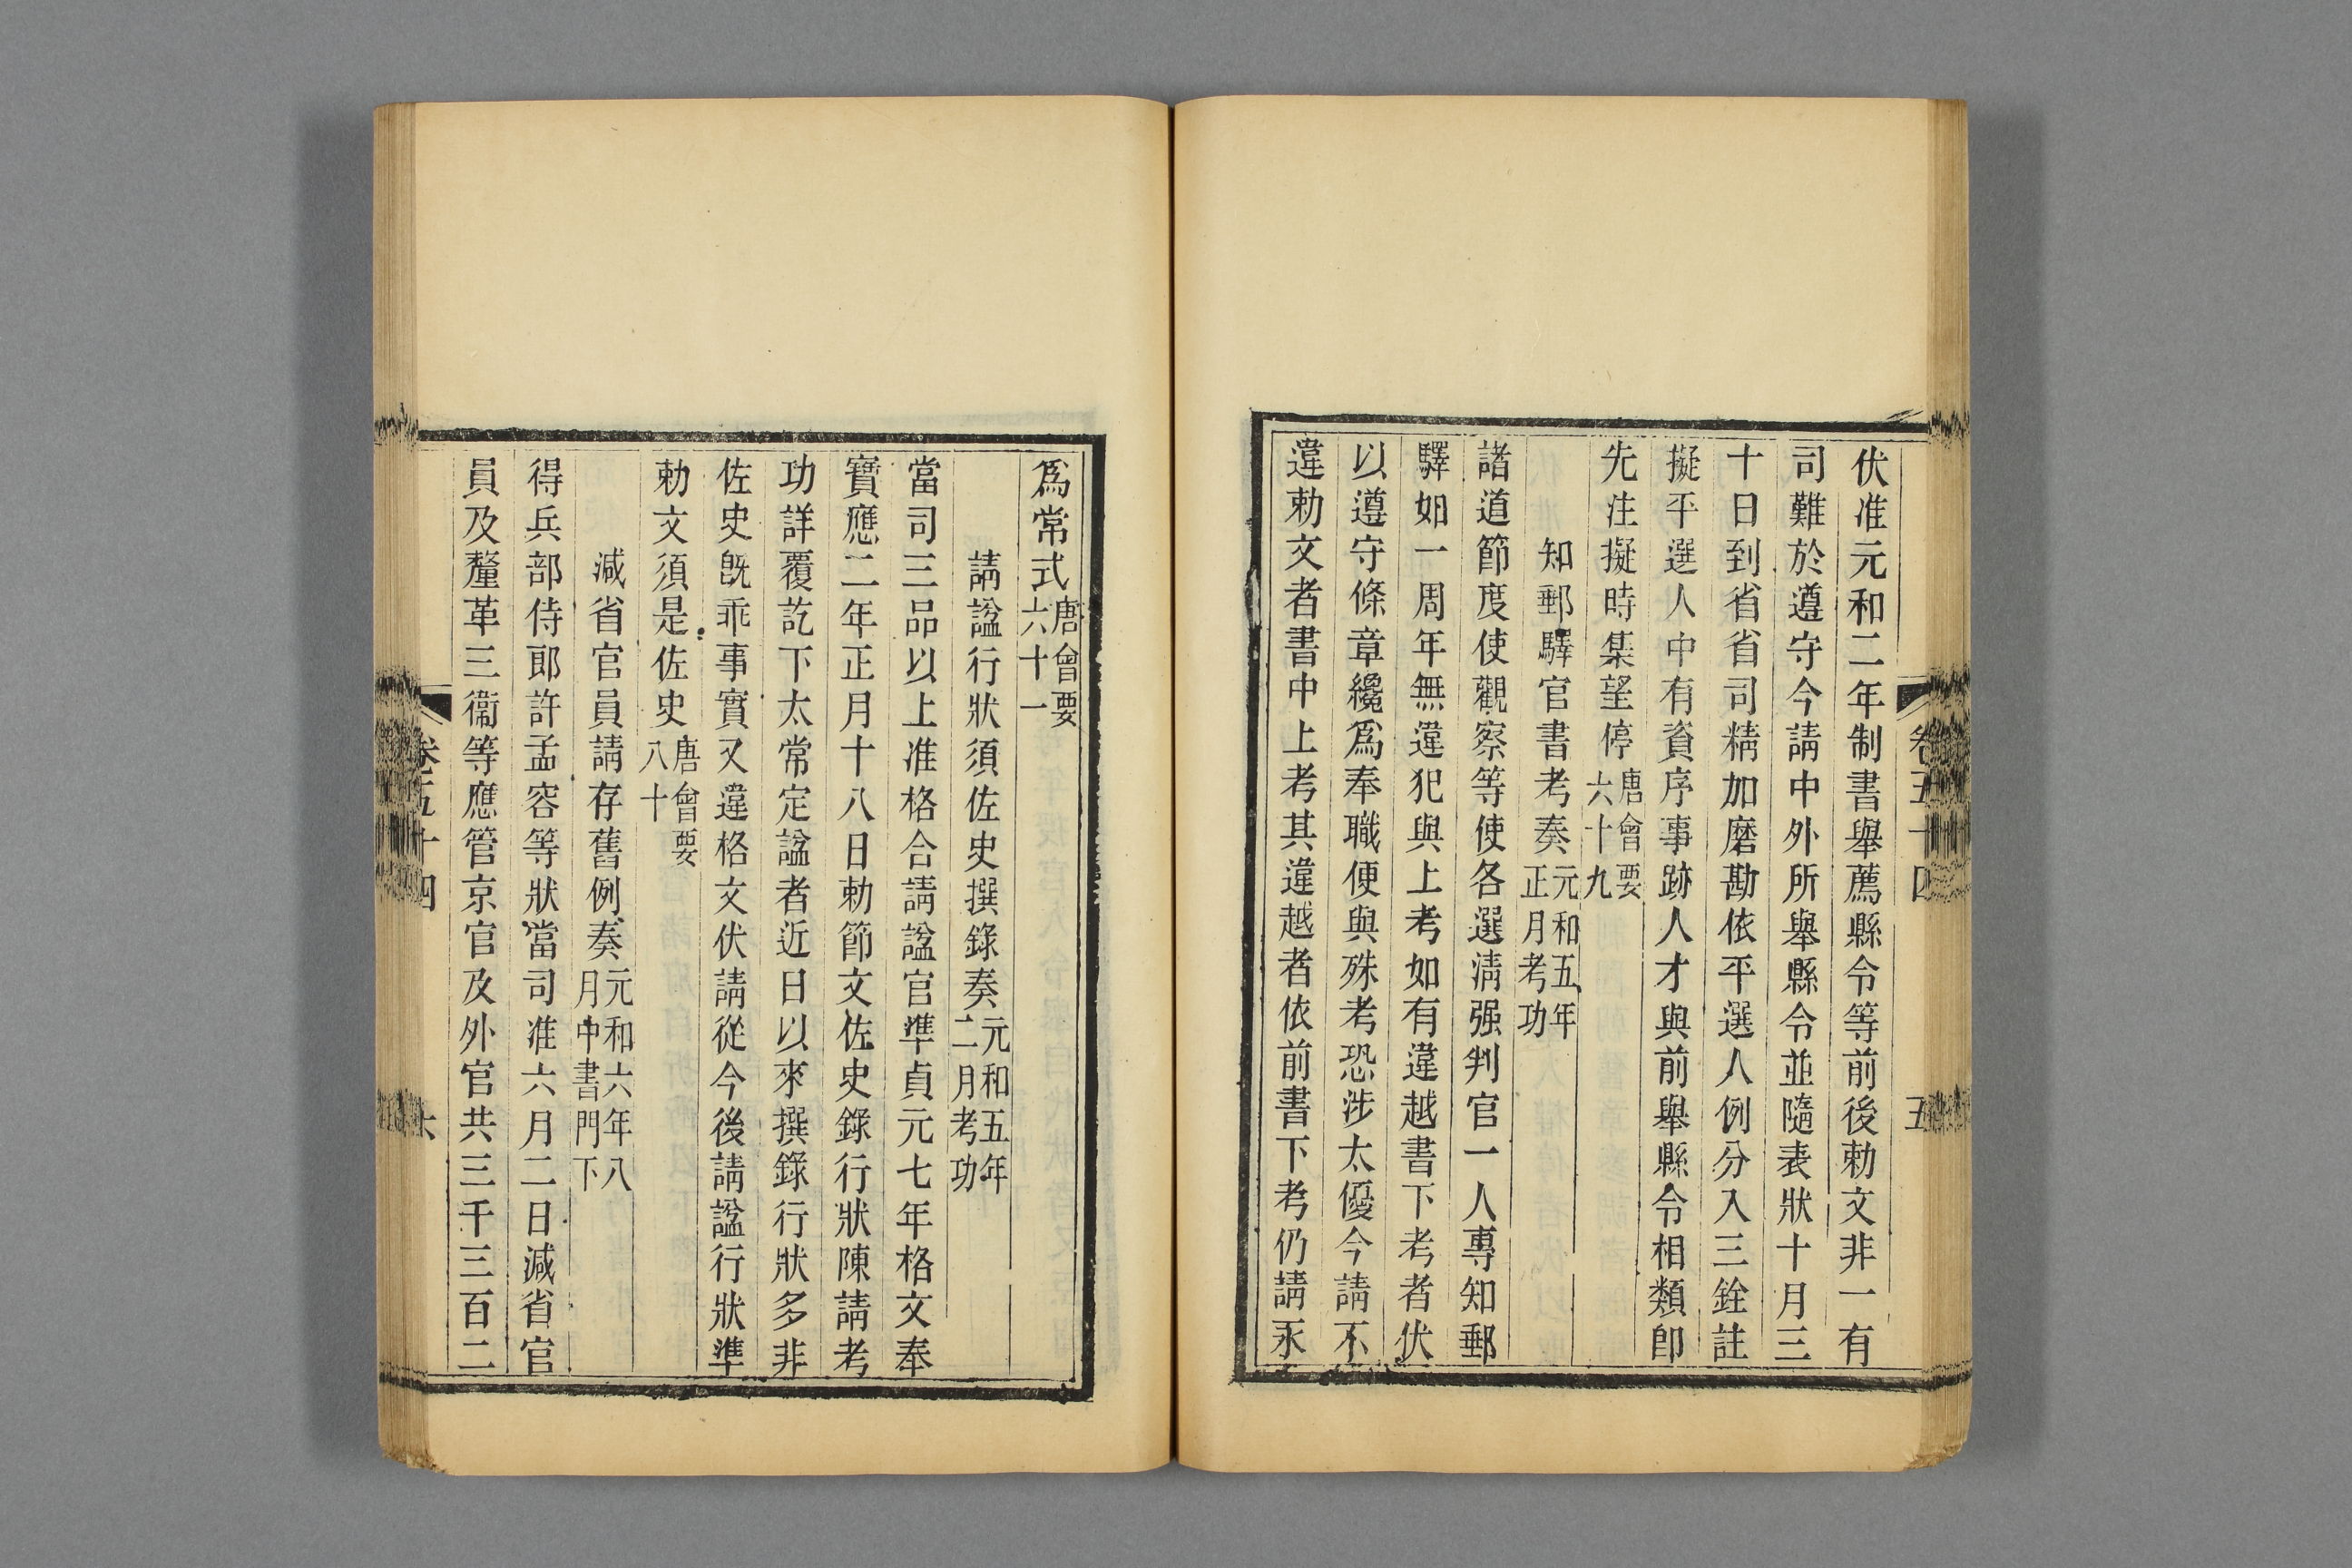 伏准元和二年制書舉薦縣令等前後勅文非一有
司難於遵守今請中外所舉縣令並隨表狀十月三
十日到省省司精加磨勘依平選人例分入三銓註
擬平選人中有資序事跡人才與前舉縣令相類即
先注擬時集望停唐會要
六十九
知郵驛官書考奏元和五年
正月考功
諸道節度使觀察等使各選清强判官一人專知郵
驛如一周年無違犯與上考如有違越書下考者伏
以遵守條章纔爲奉職便與殊考恐涉太優今請不
違勅文者書中上考其違越者依前書下考仍請永
爲常式唐會要
六十一
請謚行狀須佐史撰錄奏元和五年
二月考功
當司三品以上准格合請謚官準貞元七年格文奉
寶應二年正月十八日勅節文佐史錄行狀陳請考
功詳覆訖下太常定謚者近日以來撰錄行狀多非
佐史旣乖事實又違格文伏請從今後請謚行狀準
勅文須是佐史唐會要
八十
減省官員請存舊例奏元和六年八
月中書門下
得兵部侍郎許孟容等狀當司准六月二日減省官
員及釐革三衞等應管京官及外官共三千三百二
卷五十四
六